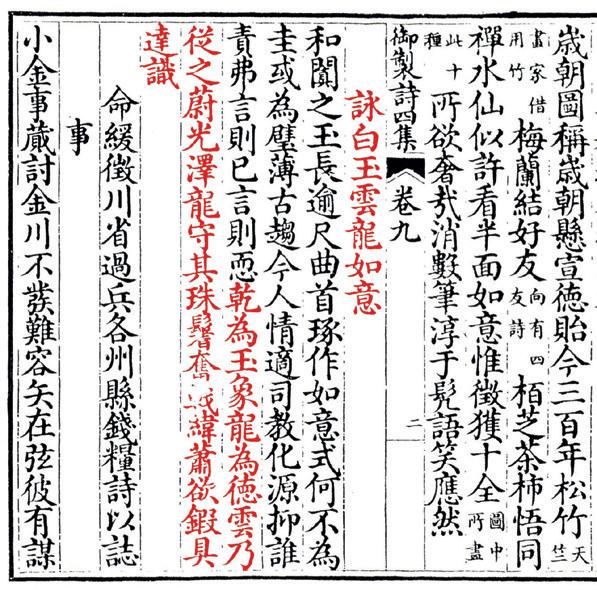 歳朝圖稱歳朝懸宣徳貽今三百年松竹天竺
畫家借用竹梅蘭結好友向有四友詩栢芝茶柿悟同
禪水仙似許看半面如意惟徵獲十全圖中所畫
此十種所欲奢㢤消數筆淳于髠語笑應然
御製詩四集 卷九 二
詠白玉雲龍如意
和闐之玉長逾尺曲首琢作如意式何不為
圭或為璧薄古趨今人情適司教化源抑誰
責弗言則已言則恧乾為玉象龍為徳雲乃
從之蔚光澤龍守其珠鬐奮緯蕭欲鍜具
達識
命緩徵川省過兵各州縣錢糧詩以誌
事
小金事蕆討金川不發難容矢在弦彼有謀